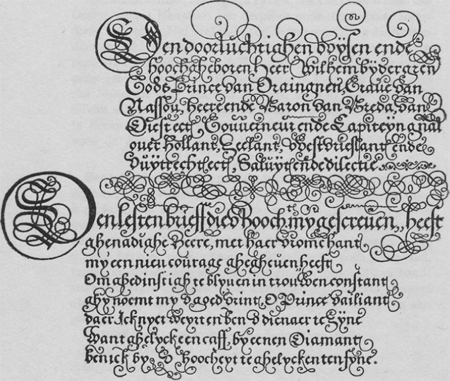 Den doorluchtighen wysen ende
hoochgheboren Heer Wilhem by der graten
Gods Prince van Oraingnen, Graue van
Nassou, Heer ende Baron van Breda, van
Diest etc. Gouuerneur ende Capiteyn gnal
ouer Hollant, Zeelant, Westvrieslant ende
Wtrecht etc. Saluyt ende dilectie.
Den lesten brieff die v hoocht. my gescreuen, heeft
ghenadighe Heere, met haer vrome hant
my een nieu courage ghegheuen heeft
Om ghedinstigh te blyuen in trouwen constant
ghy noemt my v goed vrint, O Prince vailiant
daer Ick nyet weyrt en ben v dienaer te zyne
Want ghelyck een caff, by eenen Diamant
ben ick by v Hoocheyt te ghelycken ten fyne.